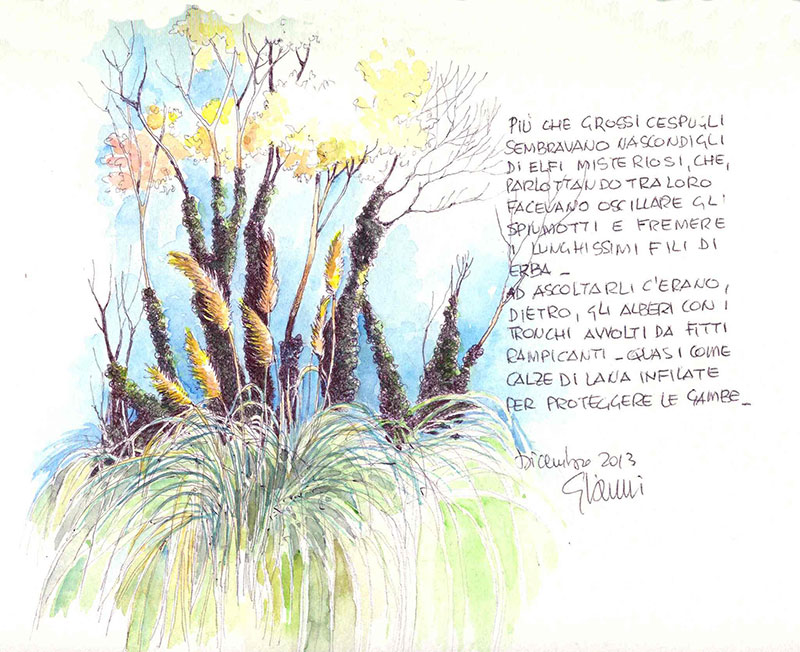 PIÙ CHE GROSSI CESPUGLI
SEMBRAVANO NASCONDIGLI
DI ELFI MISTERIOSI, CHE,
PARLOTTANDO TRA LORO
FACEVANO OSCILLARE GLI
SPIUMOTTI E FREMERE
I LUNGHISSIMI FILI DI
ERBA_
AD ASCOLTARLI C'ERANO,
DIETRO, GLI ALBERI CON I
TRONCHI AVVOLTI DA FITTI
RAMPICANTI_QUASI COME
CALZE DI LANA INFILATE
PER PROTEGGERE LE GAMBE_
Dicembre 2013
Gianni